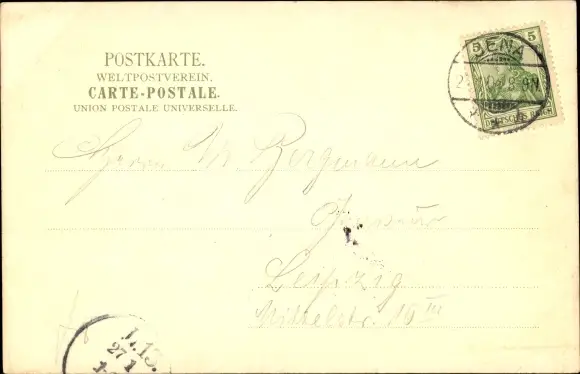 POSTKARTE.
WELTPOSTVEREIN.
CARTE-POSTALE.
UNION POSTALE UNIVERSELLE.
5 5
JENA
DEUTSCHES REICH
Herrn W. Bergmann
Leipzig
Mittelstr. 10 III
L.13.
27 1